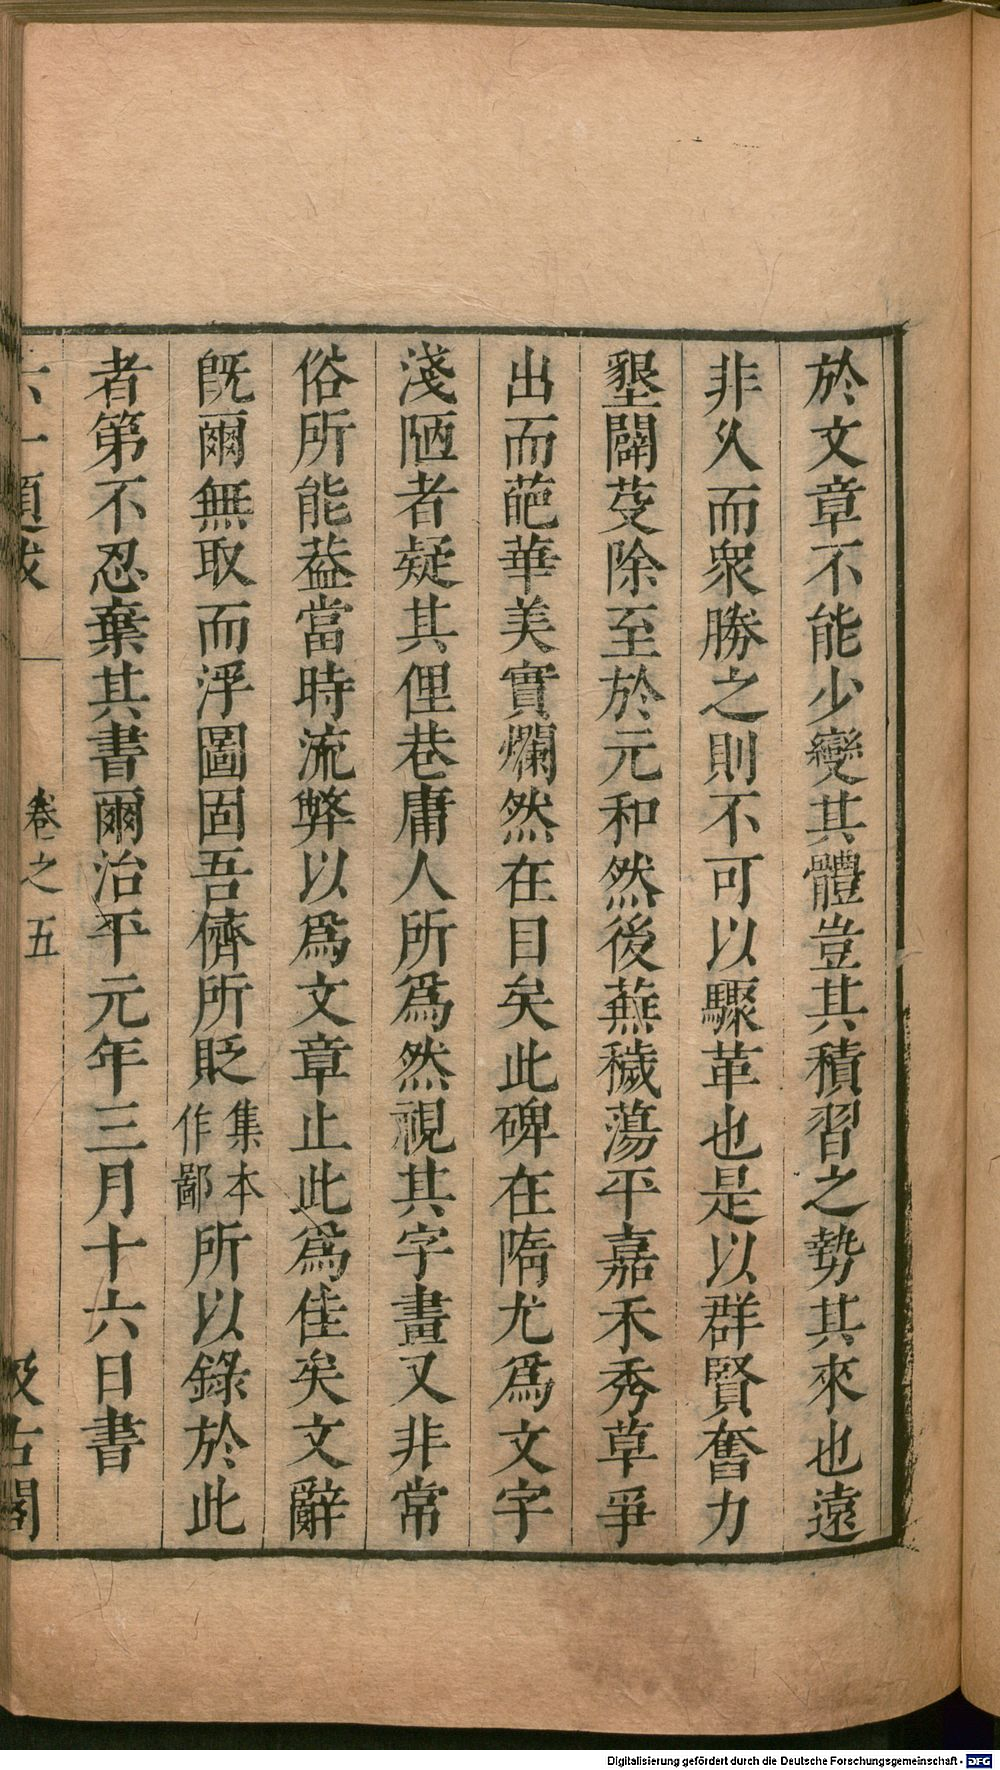 於文章不能少變其體豈其積習之勢其來也遠
非久而衆勝之則不可以驟革也是以群賢奮力
墾闢芟除至於元和然後蕪穢蕩平嘉禾秀草爭
出而葩華美實爛然在目矣此碑在隋尤爲文字
淺陋者疑其俚巷庸人所爲然視其字畫又非常
俗所能葢當時流弊以爲文章止此爲佳矣文辭
旣爾無取而浮圖固吾儕所貶集本作鄙所以錄於此
者第不忍棄其書爾治平元年三月十六日書
六一題跋 卷之五 汲古閣
Digitalisierung gefördert durch die Deutsche Forschungsgemeinschaft - DFG